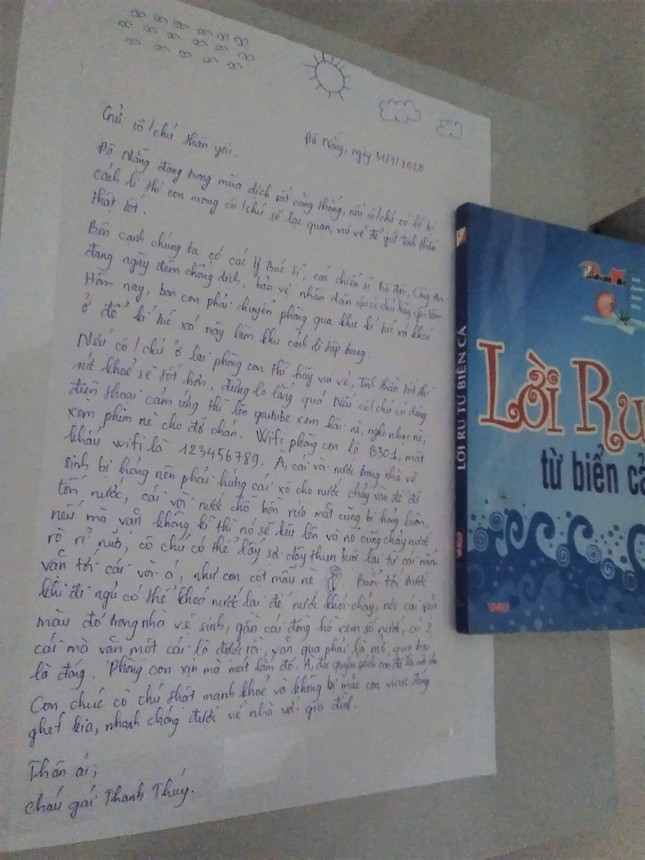 Gửi cô/chú thân yêu.
Đà Nẵng, ngày 31/7/2020
Đà Nẵng đang trong mùa dịch rất căng thẳng, nếu cô/chú có lỡ bị
cách li thì con mong cô/chú sẽ lạc quan, vui vẻ để giữ tinh thần
thật tốt.
Bên cạnh chúng ta có các Y Bác Sĩ, các chiến sĩ bộ đội, Công An
đang ngày đêm chống dịch, bảo vệ nhân dân
Hôm nay, bọn con phải chuyển phòng qua khu kí túc xá khác
ở để kí túc xá này làm khu cách li tập trung.
Nếu cô/chú ở lại phòng con thì hãy vui vẻ, tinh thần tốt thì
sức khoẻ sẽ tốt hơn, đừng lo lắng quá. Nếu cô/chú có dùng
điện thoại cảm ứng thì lên youtube xem hài nè, nghe nhạc nè,
xem phim nè cho đỡ chán. Wifi phòng con là B301, mật
khẩu wifi là 123456789. À, cái vòi nước trong nhà vệ
sinh bị hỏng nên phải hứng cái xô cho nước chảy vào đó đỡ
tốn nước, cái vòi nước chỗ bồn rửa mặt cũng bị hỏng luôn,
nếu mà vặn không kĩ thì nó sẽ kêu lên và nó cũng chảy nước
rò rỉ nữa, cô chú có thể lấy sợi dây thun buộc lại từ cái nắm
vặn tới cái vòi á, như con cột mẫu nè. Buổi tối trước
khi đi ngủ có thể khoá nước lại để nước khỏi chảy, nới cái van
màu đỏ trong nhà vệ sinh, gần cái đồng hồ xem số nước, có 2
cái mà vặn một cái là được rồi, vặn qua phải là mở, qua trái
là đóng. Phòng con xịn mà mát lắm đó. À, đọc quyển sách con để
Con chúc cô chú thật mạnh khoẻ và không bị mắc con virut đáng
ghét kia, nhanh chóng được về nhà với gia đình.
Thân ái,
cháu gái Thanh Thúy.
LỜI RU TỪ BIỂN CẢ
Lời Ru
từ biển cả